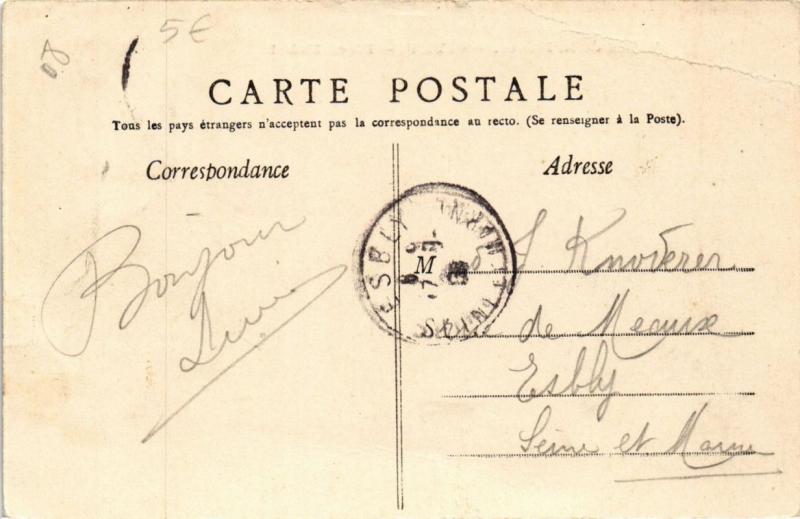 08
5€
CARTE POSTALE
Tous les pays étrangers n'acceptent pas la correspondance au recto. (Se renseigner à la Poste).
Correspondance
Adresse
Bonjour
ESBLY
M
Knoderer
de Meaux
Esbly
Seine et Marne